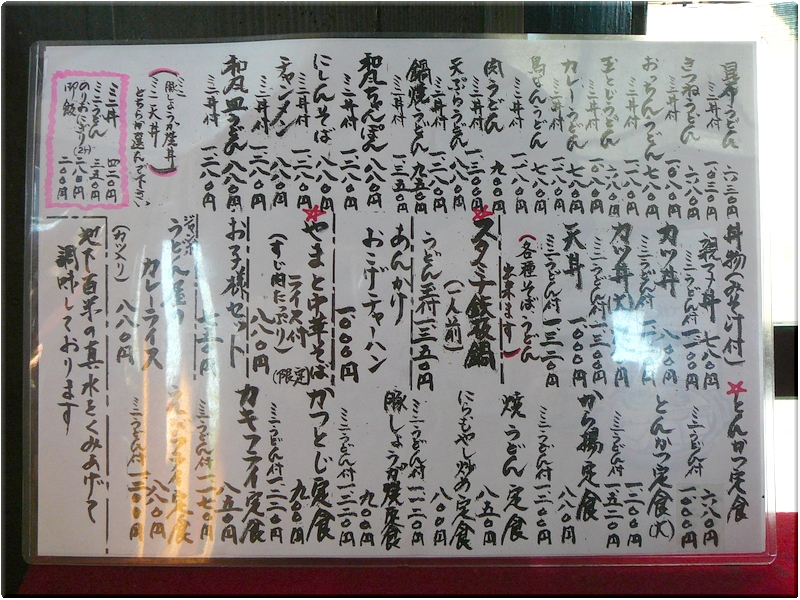 昆布うどん 六三〇円
ミニ丼付 一〇三〇円
きつねうどん 六八〇円
ミニ丼付 一〇八〇円
おっちんうどん 七八〇円
ミニ丼付 一一八〇円
玉とじうどん
ミニ丼付
カレーうどん 七八〇円
ミニ丼付 一一八〇円
うどん 七八〇円
ミニ丼付 一一八〇円
肉うどん 九〇〇円
ミニ丼付 一三〇〇円
天ぷらうどん 八八〇円
ミニ丼付 一二八〇円
鍋焼うどん 九五〇円
ミニ丼付 一三五〇円
和風ちゃんぽん 八八〇円
ミニ丼付 一二八〇円
にしんそば 八八〇円
ミニ丼付 一二八〇円
チャンメン 八八〇円
ミニ丼付 一二八〇円
和風皿うどん 八八〇円
ミニ丼付 一二八〇円
(豚しょうが焼丼
ミニ天丼)
どちらか選んで下さい
ミニ丼 四三〇円
ミニうどん 三五〇円
のりおにぎり(2ケ) 二八〇円
御飯 二〇〇円
丼物(みそ汁付)
親子丼 七八〇円
ミニうどん付 一一〇〇円
カツ丼
ミニうどん付
カツ丼(大)
ミニうどん付 一三〇〇円
天丼 一〇〇〇円
ミニうどん付 一三二〇円
(各種そばうどん
出来ます)
☆スタミナ鉄板鍋
(一人前)
うどん玉付 一三五〇円
あんかけ
おこげチャーハン
一〇〇〇円
☆やまと中華そば
ライス付
(すじ肉たっぷり) (限定)
八八〇円
お子様セット
七五〇円
ジャンボ
うどん屋の
カレーライス
(カツ入り) 八八〇円
地下百米の真水をくみあげて
調味しております
☆とんかつ定食 六八〇円
ミニうどん付 一〇〇〇円
とんかつ定食(大)
ミニうどん付 一三〇〇円
から揚定食 八八〇円
ミニうどん付 一二〇〇円
焼うどん定食 八五〇円
ミニうどん付
にらもやし炒め定食 八〇〇円
ミニうどん付 一一二〇円
豚しょうが焼定食 九〇〇円
ミニうどん付 一二二〇円
かつとじ定食 九〇〇円
ミニうどん付 一二二〇円
カキフライ定食 八五〇円
ミニうどん付 一一七〇円
えびフライ定食 八八〇円
ミニうどん付 一二〇〇円